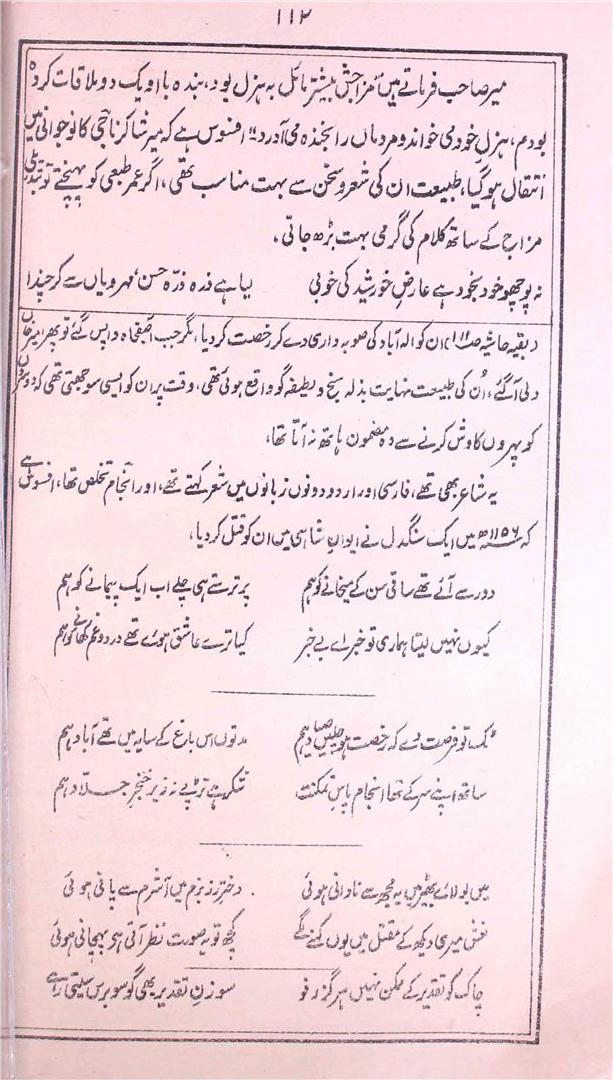 ۱۱۲
میر صاحب فرماتے ہیں "مزاجش بیشتر مائل بہ ہزل بود، بندہ با او یک دو ملاقات کردہ
بودم، ہزل خود می خواند و مردماں را بخندہ می آورد" افسوس ہے کہ میر شاکر ناجی کا نوجوانی میں
انتقال ہو گیا، طبیعت ان کی شعر و سخن سے بہت مناسب تھی، اگر عمر طبعی کو پہنچتے تو تبدیلی
مزاج کے ساتھ کلام کی گرمی بہت بڑھ جاتی۔
نہ پوچھو خود بخود ہے عارض خورشید کی خوبی لیا ہے ذرہ ذرہ حسن، مہرویاں سے کر چندا
(بقیہ حاشیہ صـ ۱۱۱) ان کو الہ آباد کی صوبہ داری دے کر رخصت کر دیا، مگر جب آصفجاہ واپس گئے تو پھر امیر خاں
دلی آ گئے، اُن کی طبیعت نہایت بذلہ سنج و لطیفہ گو واقع ہوئی تھی، وقت پر ان کو ایسی سوجھتی تھی کہ دوسروں
کو پہروں کاوش کرنے سے وہ مضمون ہاتھ نہ آتا تھا،
یہ شاعر بھی تھے، فارسی اور اردو دونوں زبانوں میں شعر کہتے تھے، اور انجام تخلص تھا، افسوس ہے
کہ ۱۱۵۶ھ میں ایک سنگدل نے ایوان شاہی میں ان کو قتل کر دیا،
دور سے آئے تھے ساقی سن کے میخانے کو ہم پر ترستے ہی چلے اب ایک پیمانے کو ہم
کیوں نہیں لیتا ہماری تو خبر اے بے خبر کیا ترے عاشق ہوئے تھے درد و غم کھانے کو ہم
ٹک تو فرصت دے کہ رخصت ہو چلیں صیاد ہم مدتوں اس باغ کے سایہ میں تھے آباد ہم
ساتھ اپنے سر کے تھا انجام پاس تمکنت شکر ہے تڑپے نہ زیر خنجر جلاد ہم
میں لولائے بھیڑ میں یہ مجھ سے نادانی ہوئی دختر رز بزم میں آ شرم سے پانی ہوئی
نعش میری دیکھ کے مقتل میں یوں کہنے لگے کچھ تو یہ صورت نظر آتی ہے پہچانی ہوئی
چاک کو تقدیر کے ممکن نہیں ہرگز رفو سوزن تقدیر بھی گو سو برس سیتی رہے